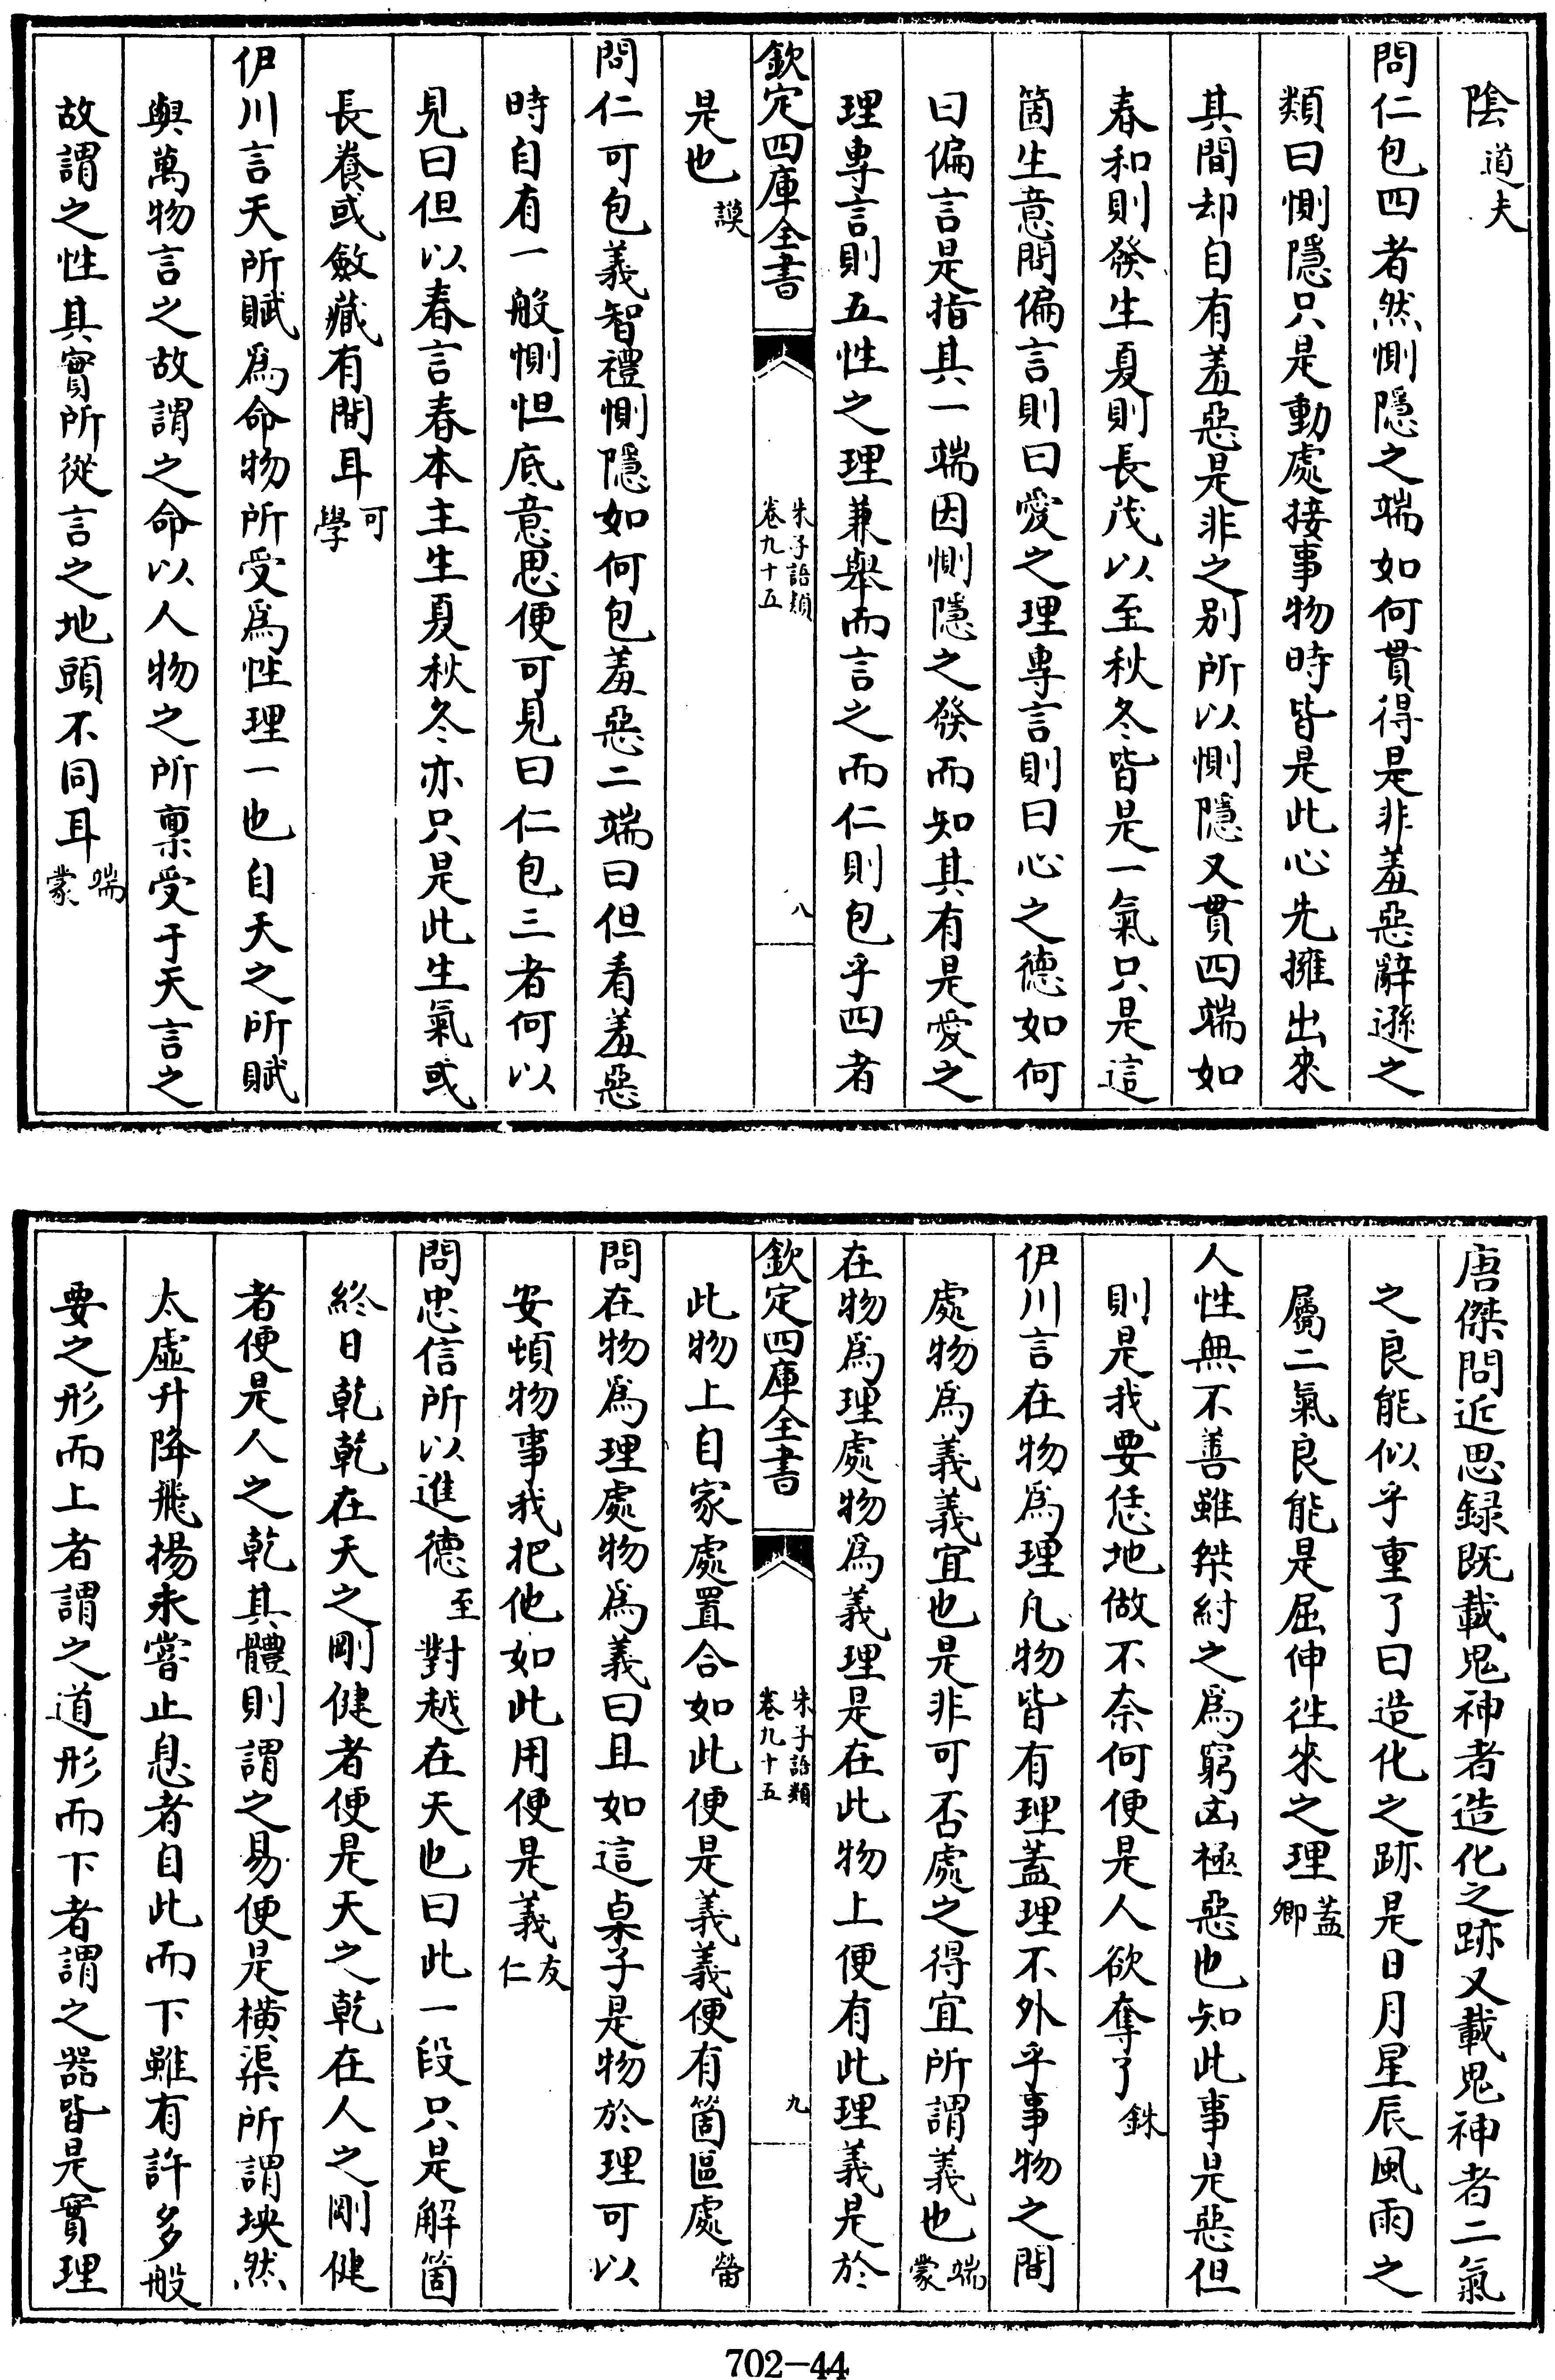 陰道夫
問仁包四者然惻隱之端如何貫得是非羞惡辭遜之
類曰惻隱只是動處接事物時皆是此心先擁出來
其間却自有羞惡是非之别所以惻隱又貫四端如
春和則發生夏則長茂以至秋冬皆是一氣只是這
箇生意問偏言則曰愛之理專言則曰心之德如何
曰偏言是指其一端因惻隱之發而知其有是愛之
理專言則五性之理兼舉而言之而仁則包乎四者
欽定四庫全書
朱子語類
卷九十五
八
是也謨
問仁可包義智禮惻隱如何包羞惡二端曰但看羞惡
時自有一般惻怛底意思便可見曰仁包三者何以
見曰但以春言春本主生夏秋冬亦只是此生氣或
長養或斂藏有間耳可學
伊川言天所賦爲命物所受爲性理一也自天之所賦
與萬物言之故謂之命以人物之所稟受于天言之
故謂之性其實所從言之地頭不同耳端蒙
唐傑問近思録既載鬼神者造化之跡又載鬼神者二氣
之良能似乎重了曰造化之跡是日月星辰風雨之
屬二氣良能是屈伸往來之理蓋卿
人性無不善雖桀紂之爲窮凶極惡也知此事是惡但
則是我要恁地做不奈何便是人欲奪了銖
伊川言在物爲理凡物皆有理蓋理不外乎事物之間
處物爲義義宜也是非可否處之得宜所謂義也端蒙
在物爲理處物爲義理是在此物上便有此理義是於
欽定四庫全書
朱子語類
卷九十五
九
此物上自家處置合如此便是義義便有箇區處㽦
問在物爲理處物爲義曰且如這桌子是物於理可以
安頓物事我把他如此用便是義友仁
問忠信所以進德至對越在天也曰此一段只是解箇
終日乾乾在天之剛健者便是天之乾在人之剛健
者便是人之乾其體則謂之易便是横渠所謂坱然
太虛升降飛揚未嘗止息者自此而下雖有許多般
要之形而上者謂之道形而下者謂之器皆是實理
702-44